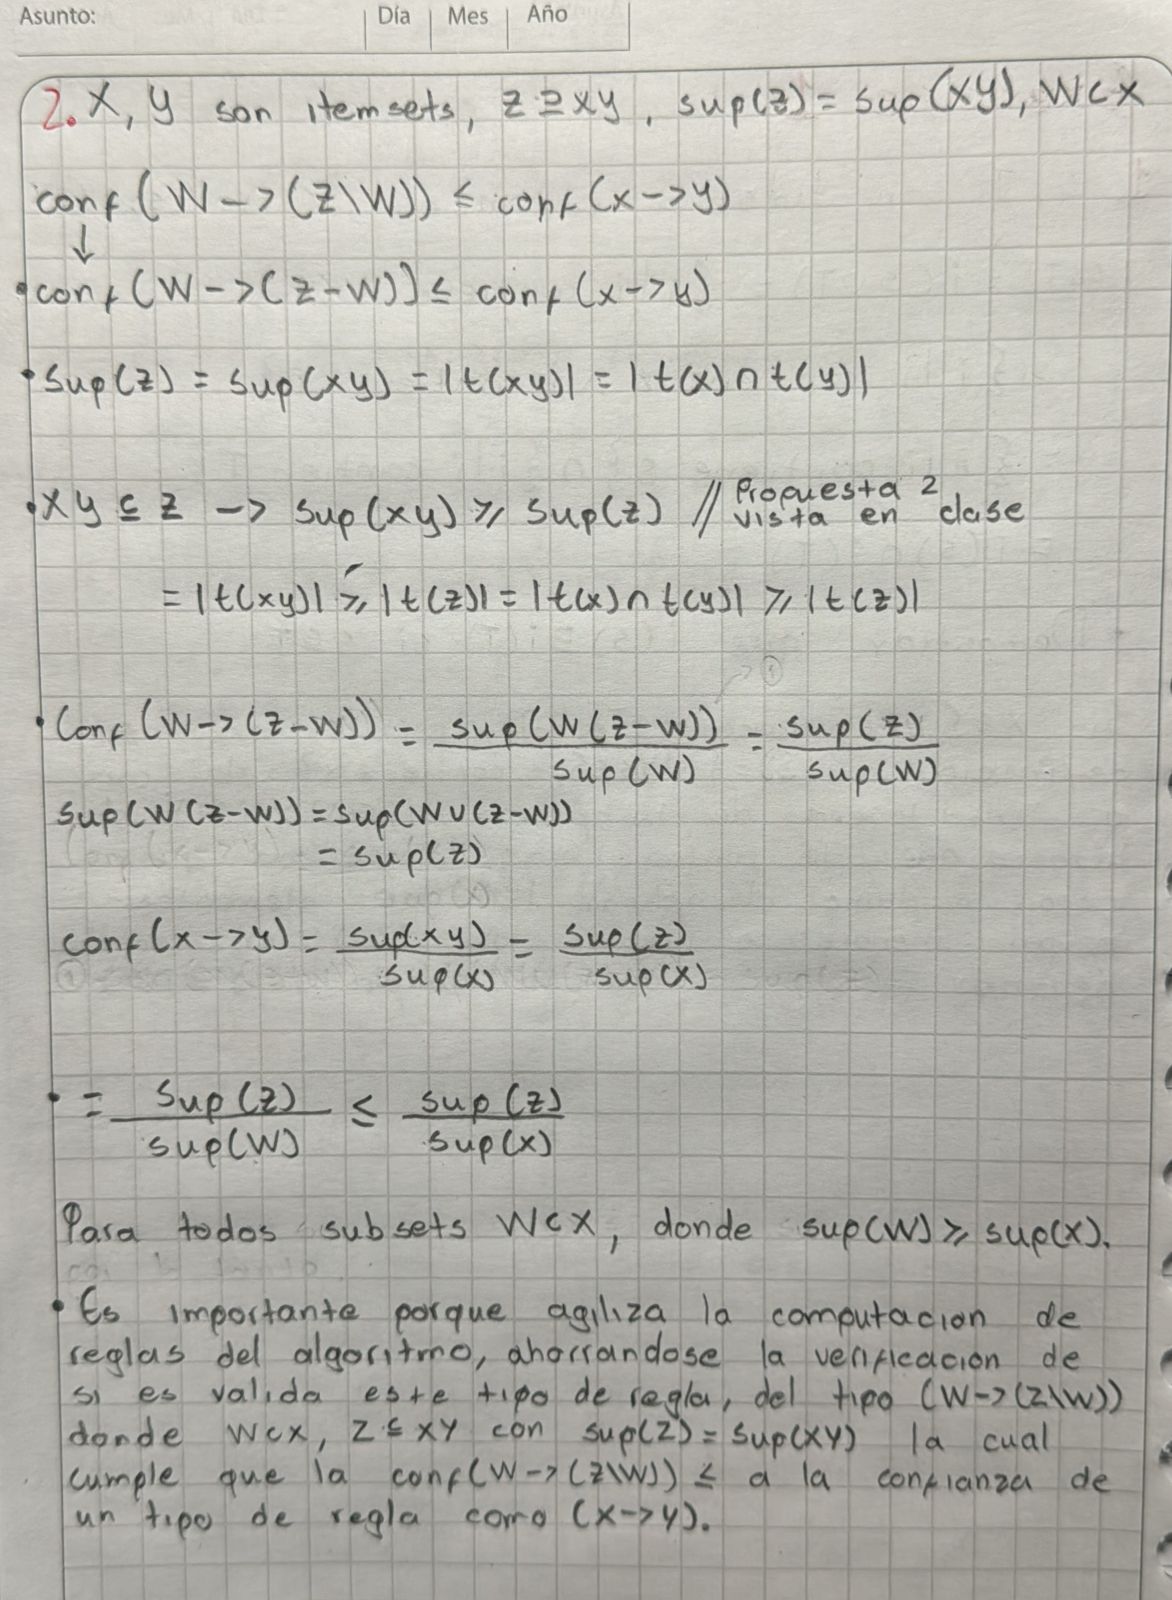 Asunto: Día Mes Año
2. X, Y son itemsets, Z ⊇ XY, sup(Z) = sup(XY), W ⊂ X
conf(W -> (Z\W)) ≤ conf(x->y)
↓
• conf(W -> (Z-W)) ≤ conf(x->y)
• sup(z) = sup(xy) = |t(xy)| = |t(x) ∩ t(y)|
• XY ⊆ Z -> sup(xy) ≥ sup(z) // Propuesta 2 vista en clase
= |t(xy)| ≥ |t(z)| = |t(x) ∩ t(y)| ≥ |t(z)|
• Conf(W->(Z-W)) = sup(W(Z-W)) / sup(W) = sup(Z) / sup(W)
sup(W(Z-W)) = sup(W∪(Z-W))
= sup(Z)
conf(x->y) = sup(xy) / sup(x) = sup(z) / sup(x)
• = sup(z) / sup(W) ≤ sup(z) / sup(x)
Para todos subsets W⊂X, donde sup(W) ≥ sup(X).
• Es importante porque agiliza la computacion de
reglas del algoritmo, ahorrandose la verificacion de
si es valida este tipo de regla, del tipo (W->(Z\W))
donde W⊂X, Z ⊆ XY con sup(Z) = sup(XY) la cual
cumple que la conf(W->(Z\W)) ≤ a la confianza de
un tipo de regla como (X->Y).